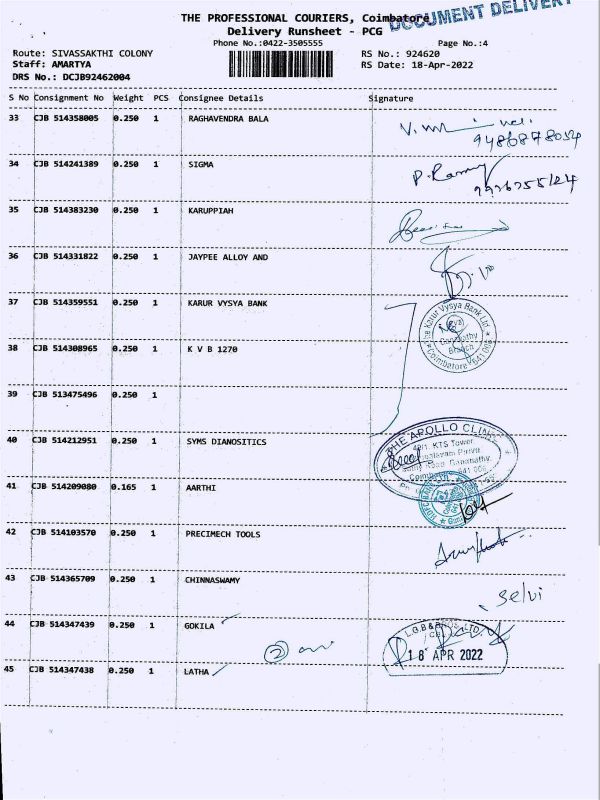 THE PROFESSIONAL COURIERS, Coimbatore
DOCUMENT DELIVERY
Delivery Runsheet - PCG
Phone No.:0422-3505555
Page No.:4
Route: SIVASSAKTHI COLONY
RS No.: 924620
Staff: AMARTYA
RS Date: 18-Apr-2022
DRS No.: DCJB92462004
S No Consignment No Weight PCS Consignee Details Signature
33 CJB 514358005 0.250 1 RAGHAVENDRA BALA
34 CJB 514241389 0.250 1 SIGMA
P. Ramy
35 CJB 514383230 0.250 1 KARUPPIAH
36 CJB 514331822 0.250 1 JAYPEE ALLOY AND
37 CJB 514359551 0.250 1 KARUR VYSYA BANK
The Karur Vysya Bank Ltd.
Ganapathy
Branch
Coimbatore 641 006
38 CJB 514308965 0.250 1 K V B 1270
39 CJB 513475496 0.250 1
40 CJB 514212951 0.250 1 SYMS DIANOSITICS
THE APOLLO CLINIC
KTS Tower
Road Ganapathy,
41 CJB 514209080 0.165 1 AARTHI
42 CJB 514103570 0.250 1 PRECIMECH TOOLS
43 CJB 514365709 0.250 1 CHINNASWAMY
Selvi
44 CJB 514347439 0.250 1 GOKILA
L.G.B & BROS. LTD.
2
18 APR 2022
45 CJB 514347438 0.250 1 LATHA